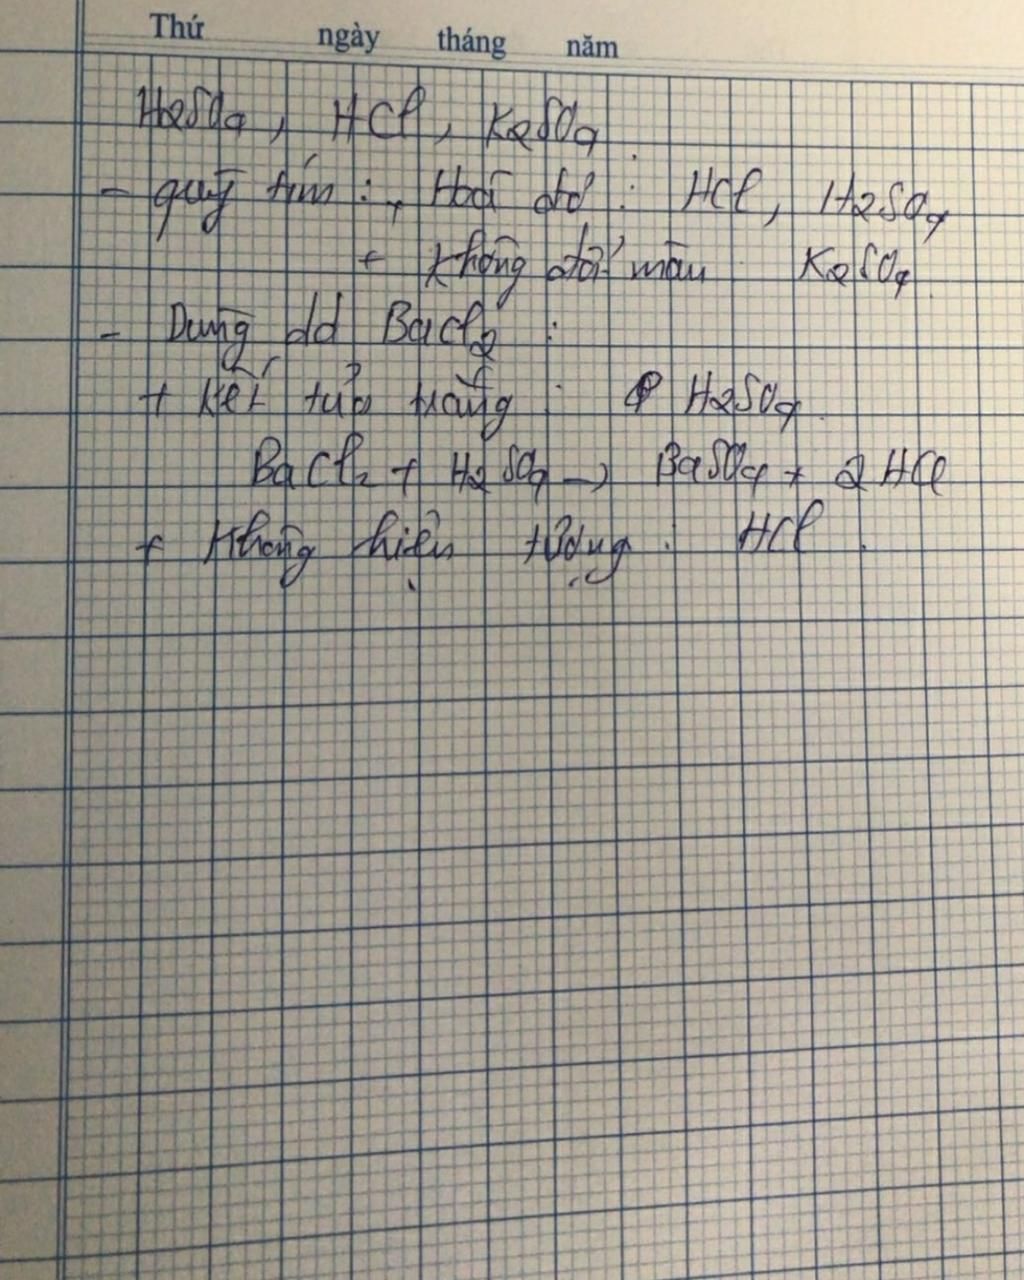 Thứ ngày tháng năm
H2SO4, HCl, K2SO4
- quỳ tím : + Hoá đỏ : HCl, H2SO4
+ không đổi màu : K2SO4
- Dùng dd BaCl2 :
+ kết tủa trắng : H2SO4
BaCl2 + H2SO4 → BaSO4 + 2 HCl
+ Không hiện tượng : HCl.